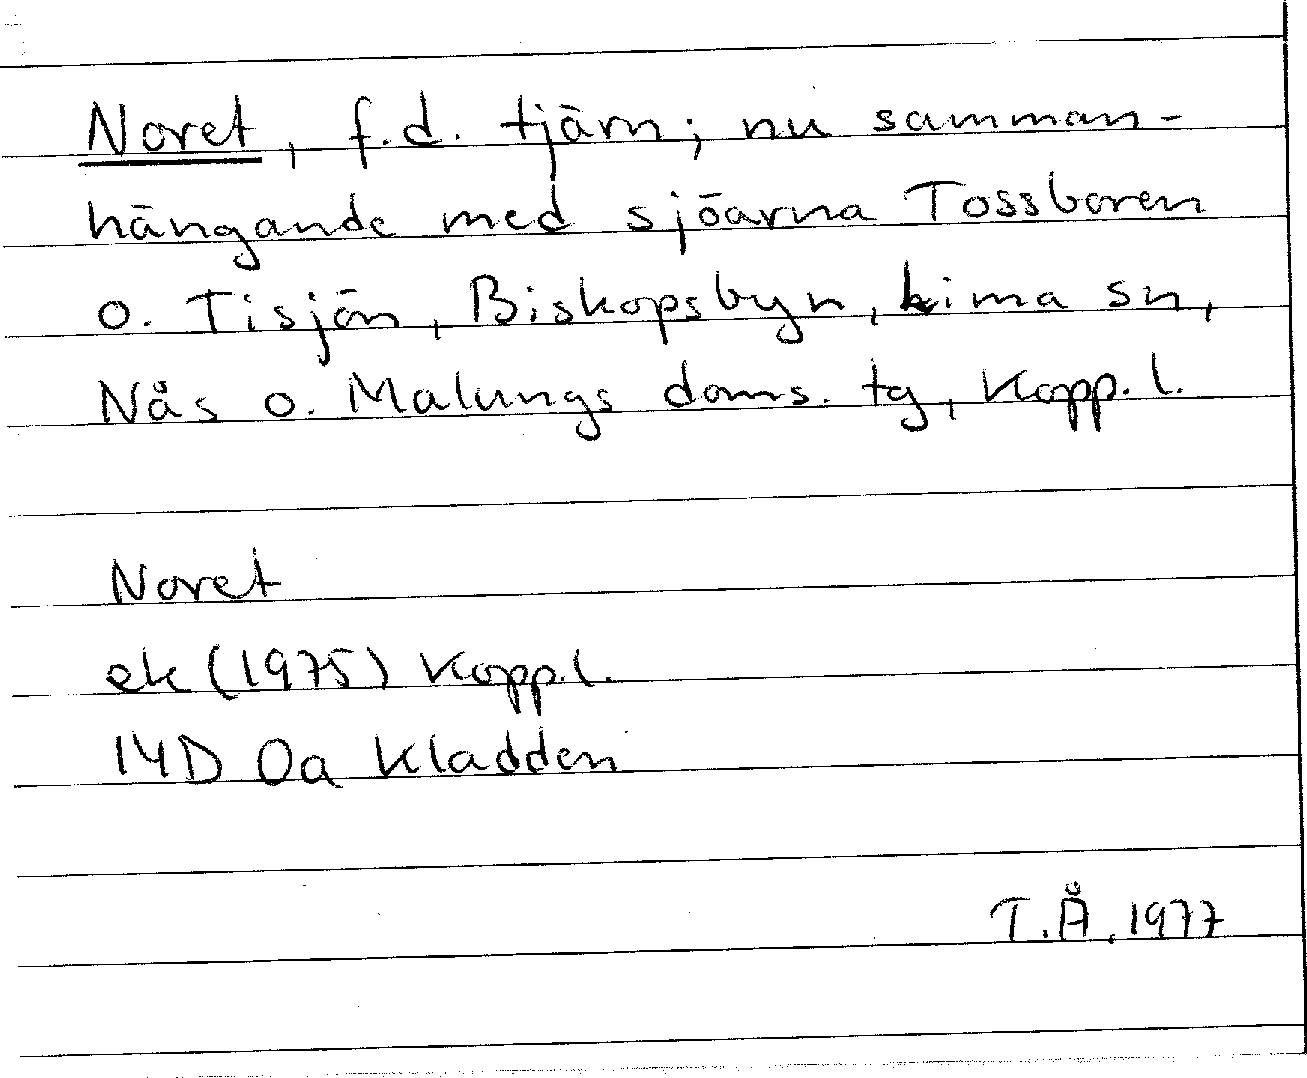 Noret, f.d. tjärn; nu samman-
hängande med sjöarna Tossboren
o. Tisjön, Biskopsbyn, Lima sn,
Nås o. Malungs doms. tg, Kopp. l.
Noret
ek (1975) Kopp.l.
14D 0a Kladden
T.Å. 1977